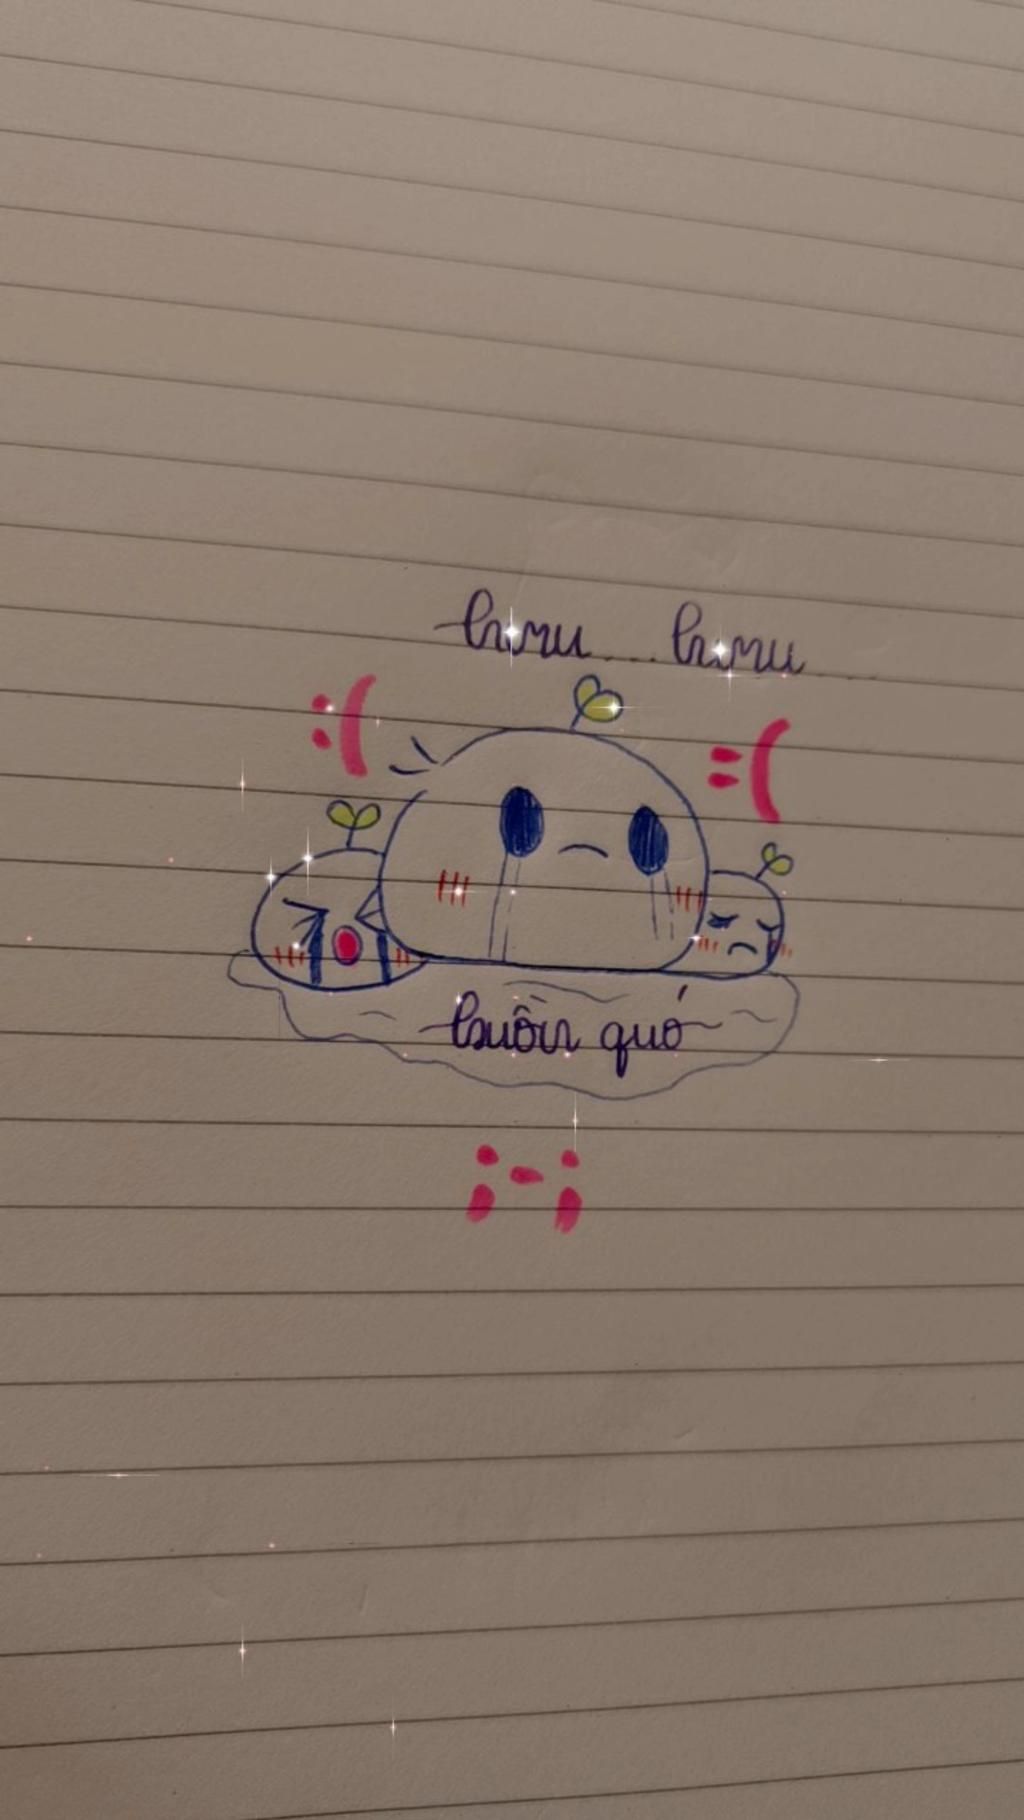 hmu... hmu...
:(
=(
buồn quó
;-;